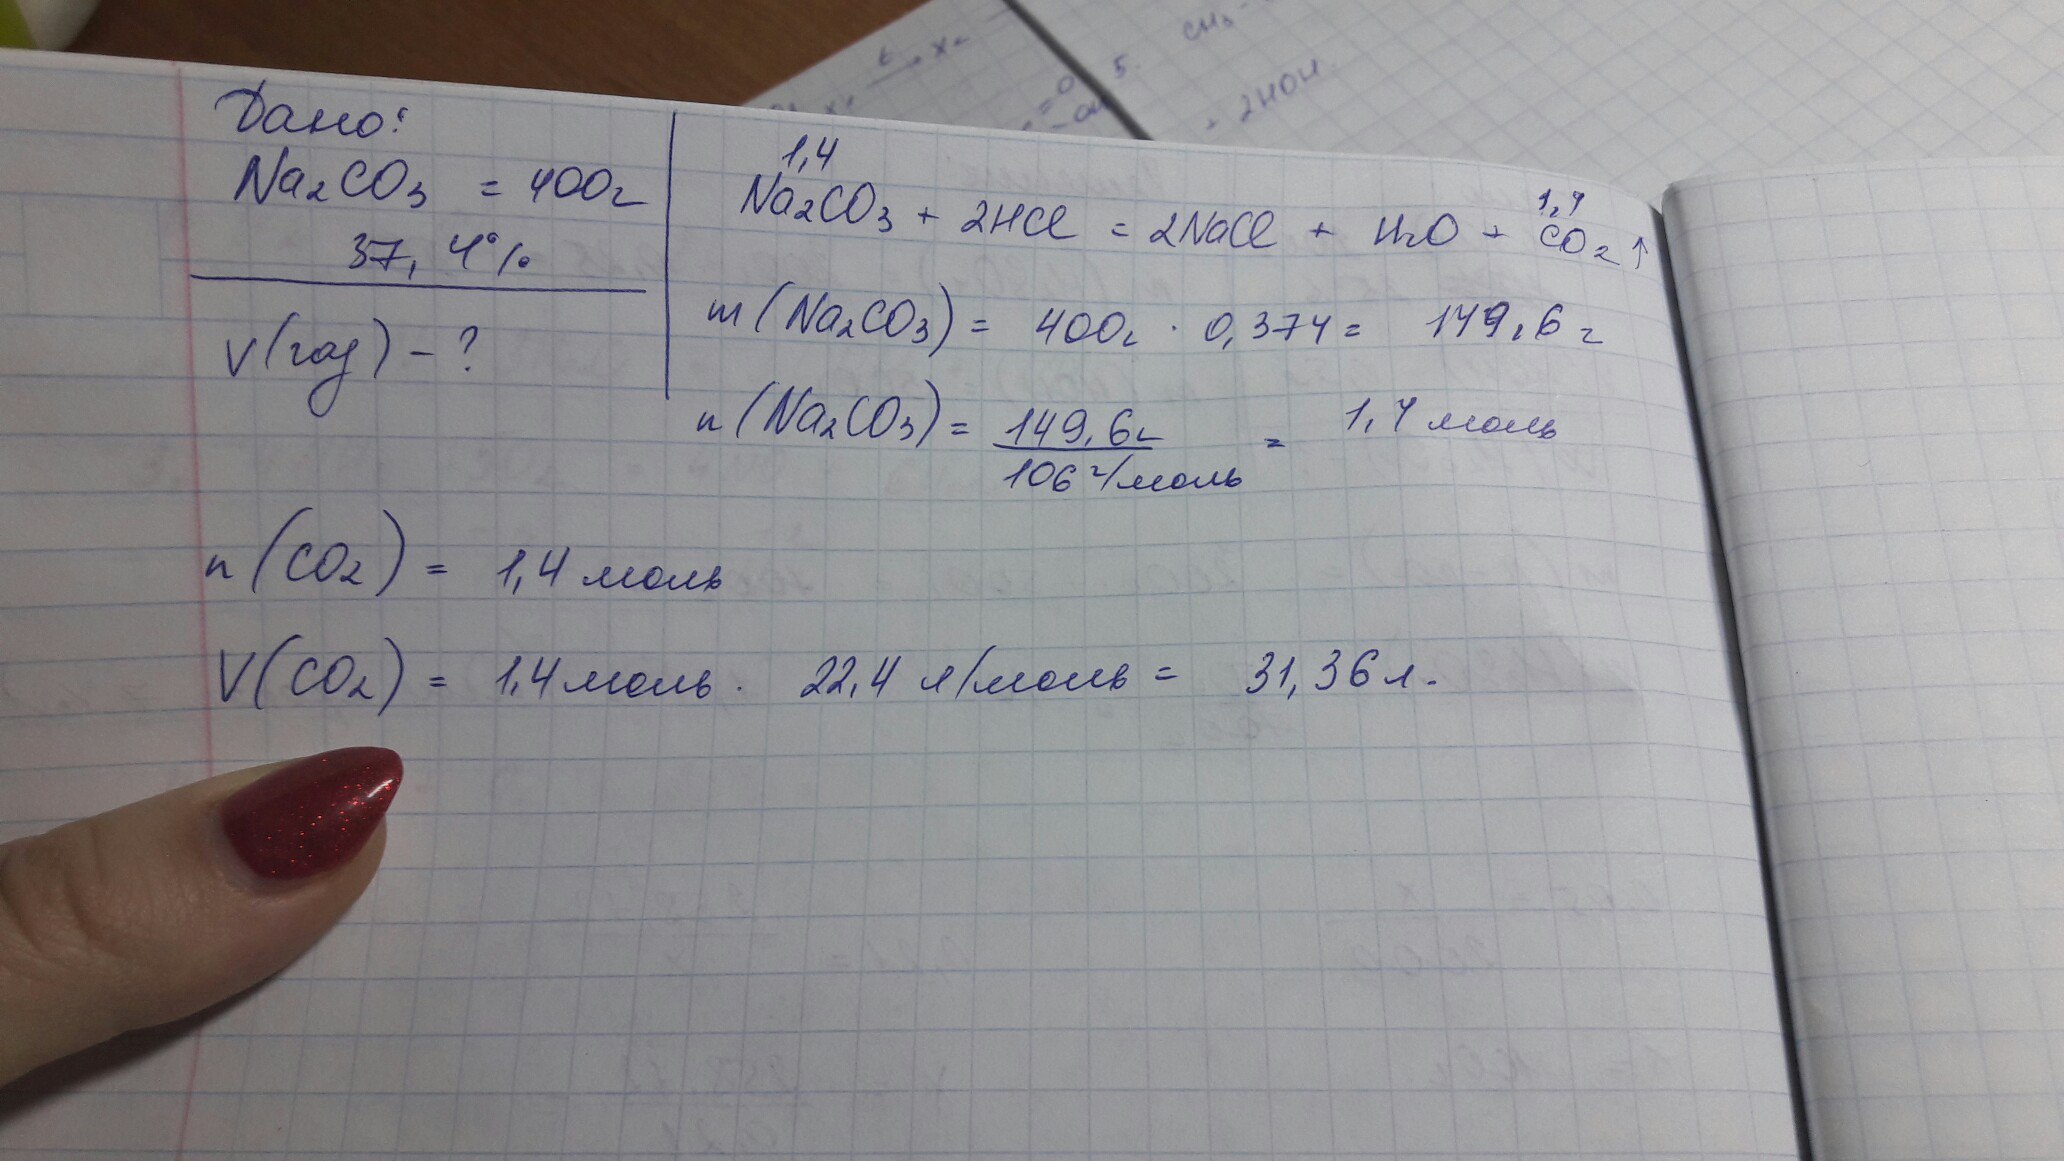 Дано:
Na2CO3 = 400г
37,4%
V(газ) - ?
1,4 1,4
Na2CO3 + 2HCl = 2NaCl + H2O + CO2↑
m(Na2CO3) = 400г · 0,374 = 149,6г
n(Na2CO3) = 149,6г / 106 г/моль = 1,4 моль
n(CO2) = 1,4 моль
V(CO2) = 1,4 моль · 22,4 л/моль = 31,36 л.
5. CH3
+ 2HOH